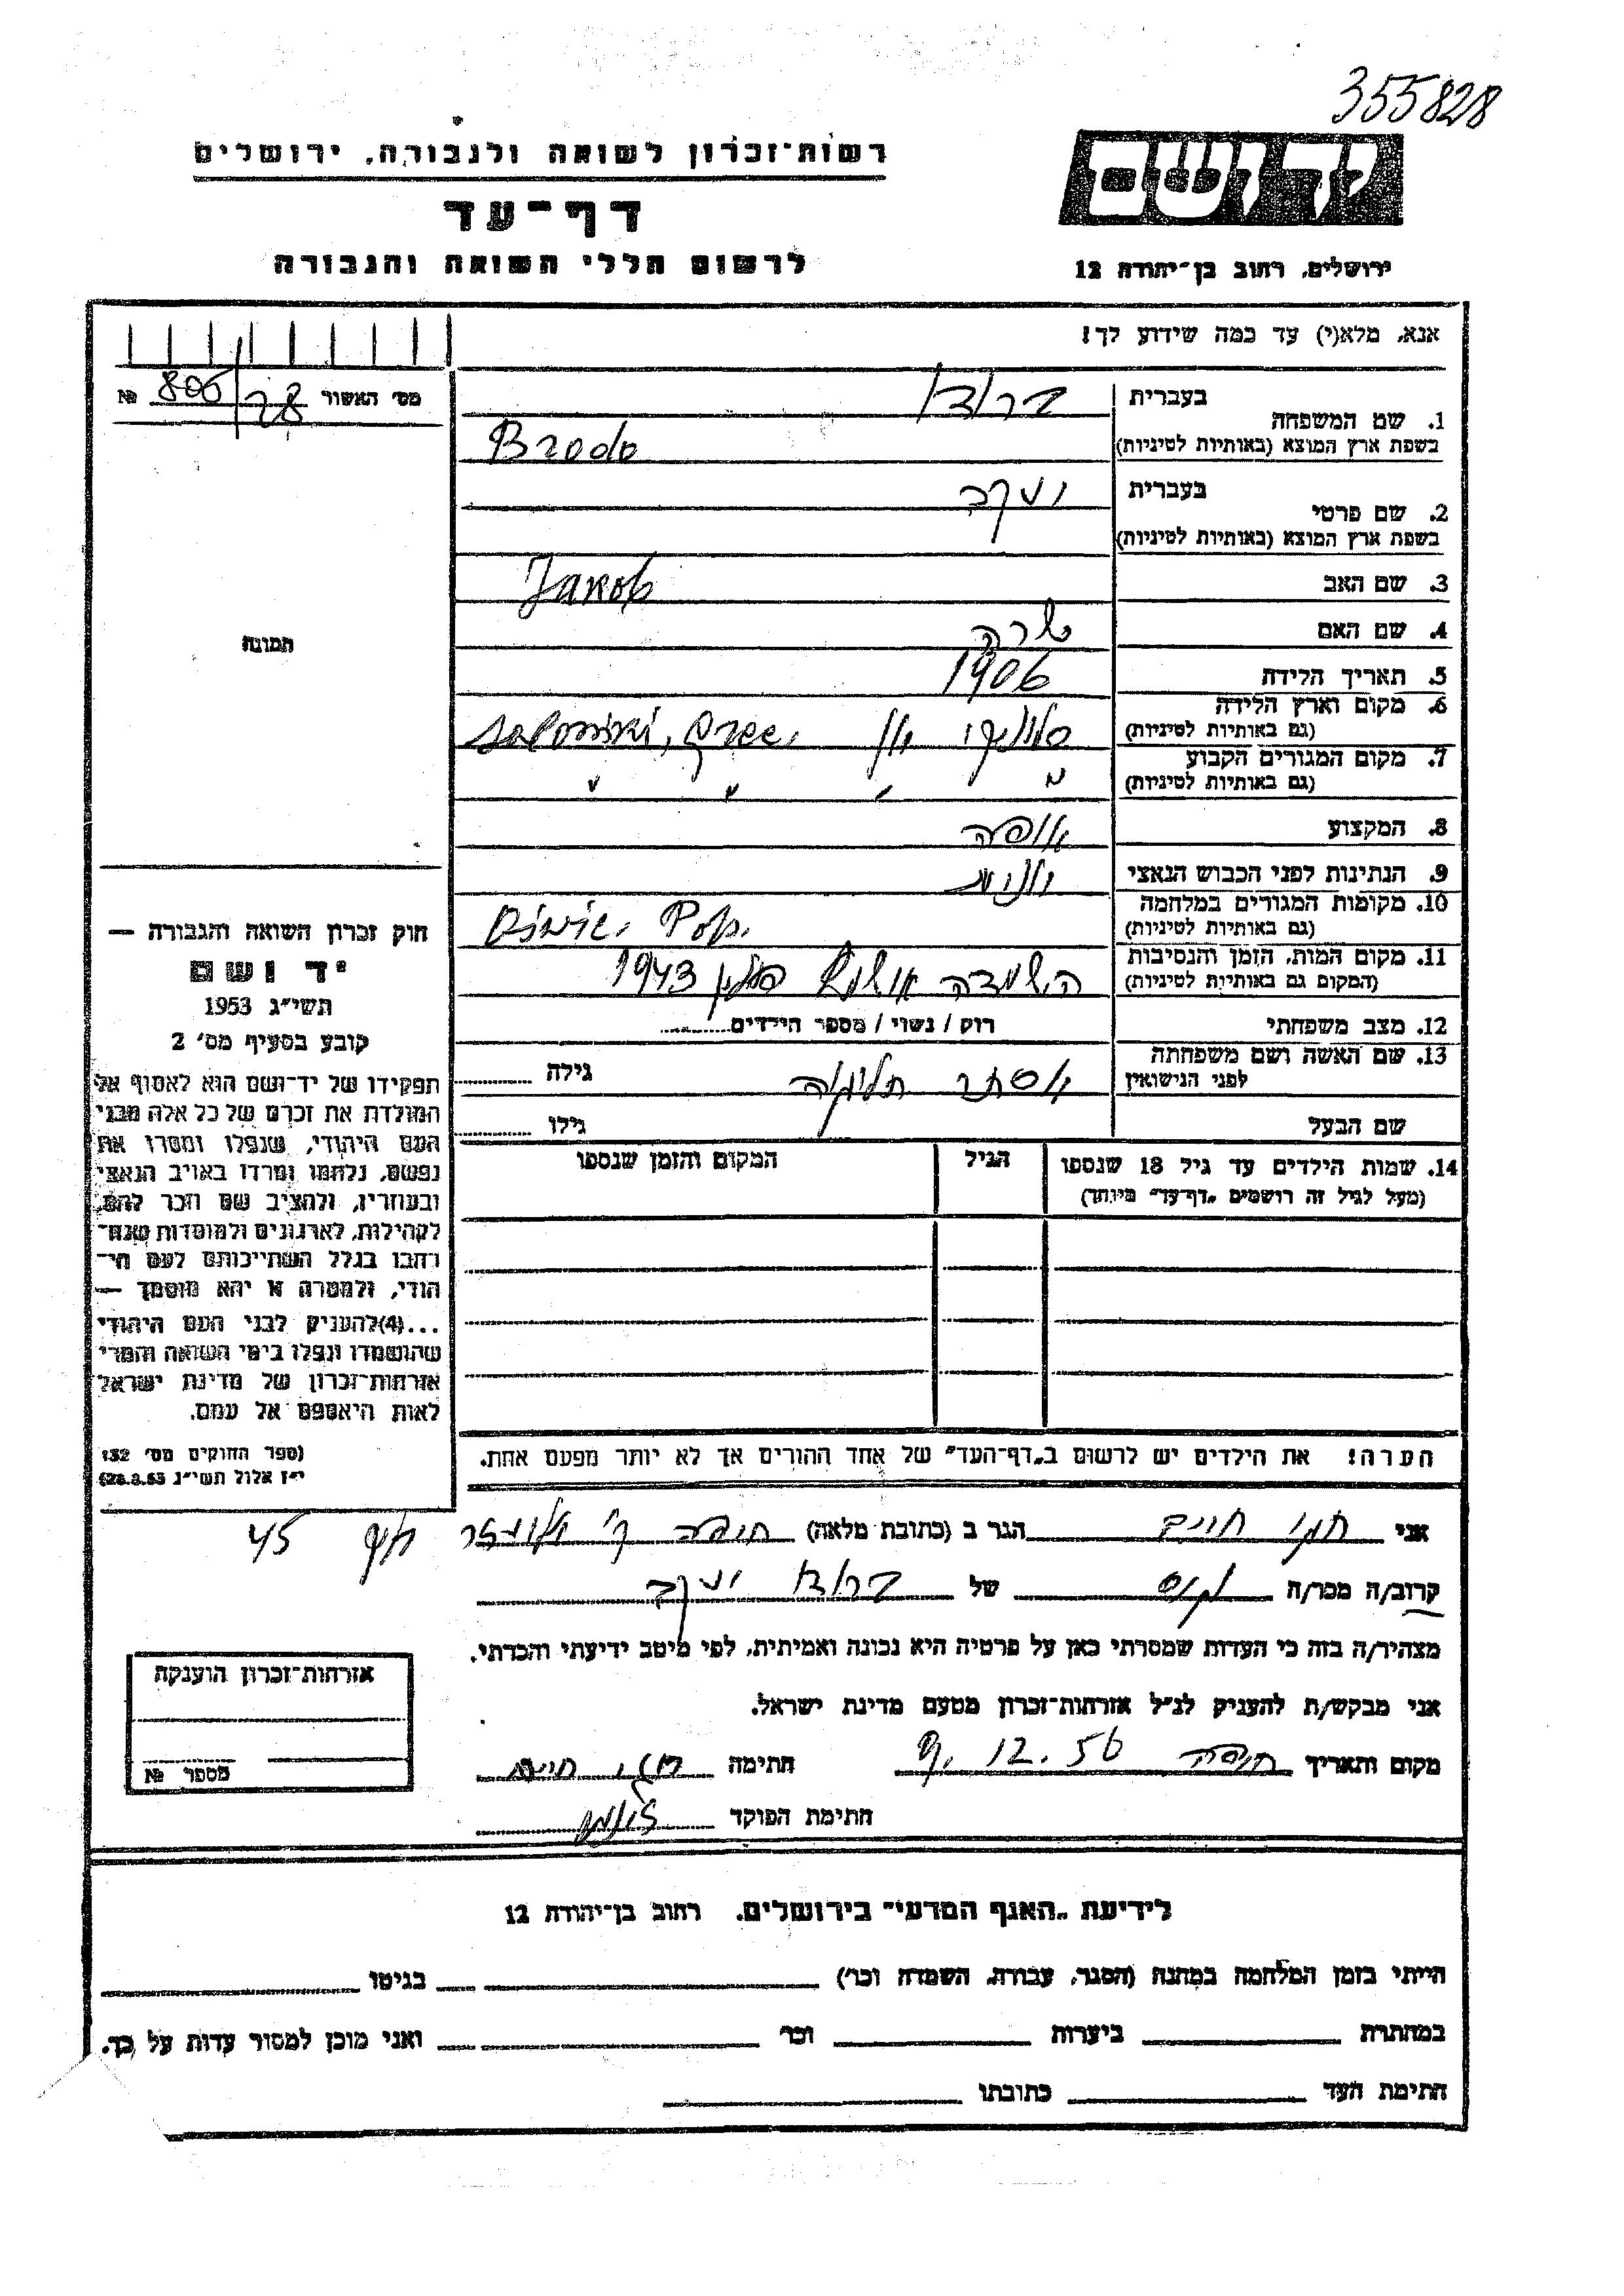 355828
רשות־זכרון לשואה ולגבורה, ירושלים
יד ושם
דף־עד
לרשום חללי השואה והגבורה
ירושלים, רחוב בן־יהודה 12
אנא, מלא(י) עד כמה שידוע לך!
מס׳ האשור 28/806 №
1. שם המשפחה
בעברית ברודו
בשפת ארץ המוצא (באותיות לטיניות) Brodo
2. שם פרטי
בעברית יעקב
בשפת ארץ המוצא (באותיות לטיניות)
3. שם האב Jakob
4. שם האם שרה
5. תאריך הלידה 1906
6. מקום וארץ הלידה
(גם באותיות לטיניות) סלוניקי יון Saloniki, Gree.
7. מקום המגורים הקבוע
(גם באותיות לטיניות) " " " "
8. המקצוע אופה
9. הנתינות לפני הכבוש הנאצי יונית
10. מקומות המגורים במלחמה
(גם באותיות לטיניות)
11. מקום המות, הזמן והנסיבות
(המקום גם באותיות לטיניות) השמדה פולין 1943
12. מצב משפחתי רוק / נשוי / מספר הילדים
13. שם האשה ושם משפחתה
לפני הנישואין אסתר גילה
שם הבעל גילו
14. שמות הילדים עד גיל 18 שנספו
(מעל לגיל זה רושמים „דף־עד" מיוחד)
הגיל
המקום והזמן שנספו
תמונה
חוק זכרון השואה והגבורה —
יד ושם
תשי״ג 1953
קובע בסעיף מס׳ 2
תפקידו של יד־ושם הוא לאסוף אל
המולדת את זכרם של כל אלה מבני
העם היהודי, שנפלו ומסרו את
נפשם, נלחמו ומרדו באויב הנאצי
ובעוזריו, ולהציב שם וזכר להם,
לקהילות, לארגונים ולמוסדות שנח־
רבו בגלל השתייכותם לעם הי־
הודי, ולמטרה זו יהא מוסמך —
...(4)להעניק לבני העם היהודי
שהושמדו ונפלו בימי השואה והמרי
אזרחות־זכרון של מדינת ישראל
לאות היאספם אל עמם.
(ספר החוקים מס׳ 132
י״ז אלול תשי״ג 28.8.53)
הערה! את הילדים יש לרשום ב„דף־העד" של אחד ההורים אך לא יותר מפעם אחת.
אני חיים הגר ב (כתובת מלאה) חיפה 45
קרוב/ה מכר/ה של ברודו יעקב
מצהיר/ה בזה כי העדות שמסרתי כאן על פרטיה היא נכונה ואמיתית, לפי מיטב ידיעתי והכרתי.
אני מבקש/ת להעניק לנ״ל אזרחות־זכרון מטעם מדינת ישראל.
מקום ותאריך חיפה 9.12.56 חתימה חיים
חתימת הפוקד
אזרחות־זכרון הוענקה
מספר №
לידיעת „האגף המדעי" בירושלים, רחוב בן־יהודה 12
הייתי בזמן המלחמה במחנה (הסגר, עבודה, השמדה וכו׳) בגיטו
במחתרת ביערות וכו׳ ואני מוכן למסור עדות על כך.
חתימת העד כתובתו